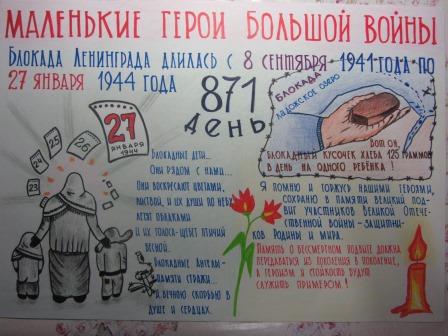 МАЛЕНЬКИЕ ГЕРОИ БОЛЬШОЙ ВОЙНЫ
БЛОКАДА ЛЕНИНГРАДА ДЛИЛАСЬ С 8 СЕНТЯБРЯ 1941 ГОДА ПО
27 ЯНВАРЯ 1944 ГОДА
871
ДЕНЬ
БЛОКАДА
ЛАДОЖСКОЕ ОЗЕРО
ВОТ ОН,
БЛОКАДНЫЙ КУСОЧЕК ХЛЕБА 125 ГРАММОВ
В ДЕНЬ НА ОДНОГО РЕБЁНКА!
23
24
25
26
27
ЯНВАРЯ
1944
БЛОКАДНЫЕ ДЕТИ...
ОНИ РЯДОМ С НАМИ...
ОНИ ВОСКРЕСАЮТ ЦВЕТАМИ,
ЛИСТВОЙ, И ИХ ДУШИ ПО НЕБУ
ЛЕТЯТ ОБЛАКАМИ
И ИХ ГОЛОСА-ЩЕБЕТ ПТИЧИЙ
ВЕСНОЙ.
БЛОКАДНЫЕ АНГЕЛЫ-
ПАМЯТИ СТРАЖИ...
И ВЕЧНОЮ СКОРБЬЮ В
ДУШЕ И СЕРДЦАХ.
Я ПОМНЮ И ГОРЖУСЬ НАШИМИ ГЕРОЯМИ,
СОХРАНЮ В ПАМЯТИ ВЕЛИКИЙ ПОД-
ВИГ УЧАСТНИКОВ ВЕЛИКОЙ ОТЕ-
ЧЕСТВЕННОЙ ВОЙНЫ-ЗАЩИТНИ-
КОВ РОДИНЫ И МИРА.
ПАМЯТЬ О БЕССМЕРТНОМ ПОДВИГЕ ДОЛЖНА
ПЕРЕДАВАТЬСЯ ИЗ ПОКОЛЕНИЯ В ПОКОЛЕНИЕ,
А ГЕРОИЗМ И СТОЙКОСТЬ БУДУТ
СЛУЖИТЬ ПРИМЕРОМ!